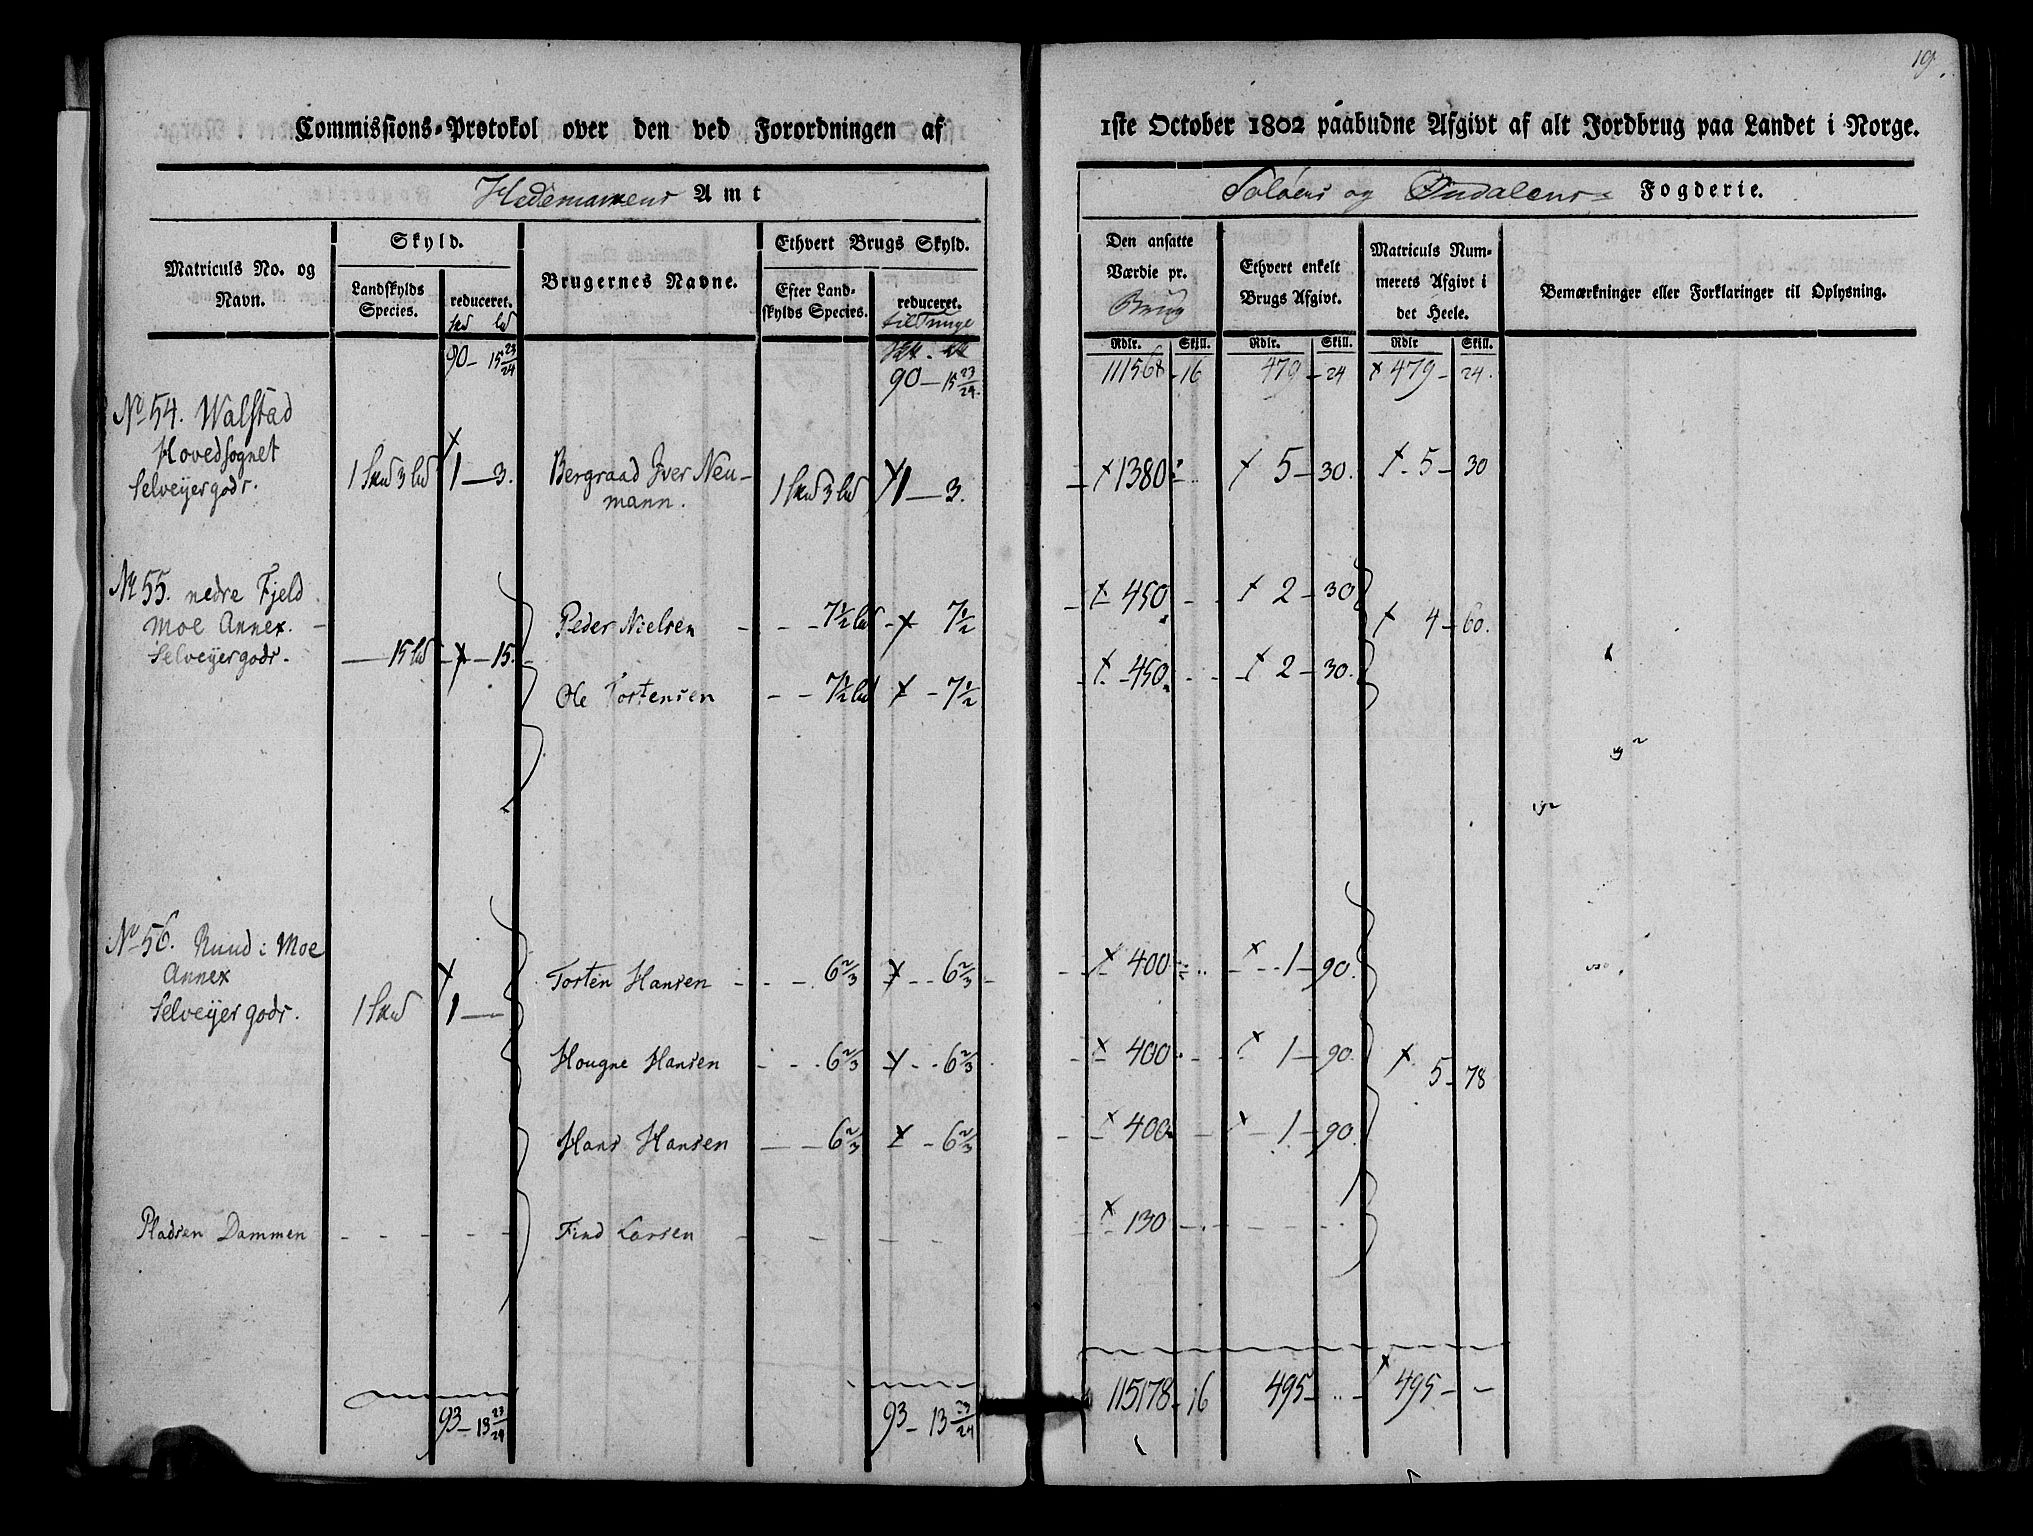 19.
Commissions-Protokol over den ved Forordningen af
1ste October 1802 paabudne Afgivt af alt Jordbrug paa Landet i Norge.
Hedemarkens Amt
Soløers og Oudalens Fogderie.
Matriculs No. og Navn.
Skyld.
Landskylds Species.
reduceret.
Skd Ld
Brugernes Navne.
Ethvert Brugs Skyld.
Efter Landskylds Species.
reduceret.
til Tunge
Den ansatte Værdie pr.
Brug
Ethvert enkelt Brugs Afgivt.
Matriculs Nummerets Afgivt i det Heele.
Bemærkninger eller Forklaringer til Oplysning.
Rdlr. Skill. Rdlr. Skill. Rdlr Skill.
90 – 15 23/24 90 – 15 23/24. 111568 – 16 479 – 24 x 479 – 24.
No 54. Walstad
Hovedsognet
Selveyergods. 1 Skd 3 Ld x 1 — 3. Bergraad Iver Neu-
mann. 1 Skd 3 Ld x 1 — 3. x 1380 x 5 – 30. x 5 – 30
No 55. nedre Fjeld
Moe Annex.
Selveyergods. 15 Ld x 15.
Peder Nielsen 7½ Ld x 7½ x 450 x 2 – 30 x 4 – 60.
Ole Tostensen 7½ Ld x 7½ x 450 x 2 – 30.
No 56. Ruud i Moe
Annex
Selveyergods. 1 Skd x 1 —
Tosten Hansen 6 2/3 x 6 2/3 x 400 x 1 – 90.
Hougne Hansen 6 2/3 x 6 2/3 x 400 x 1 – 90. x 5 – 78
Hans Hansen 6 2/3 x 6 2/3 x 400 x 1 – 90.
Pladsen Dammen Find Larsen x 130
93 – 13 23/24 93 – 13 23/24 115178 – 16 495 – x 495 –